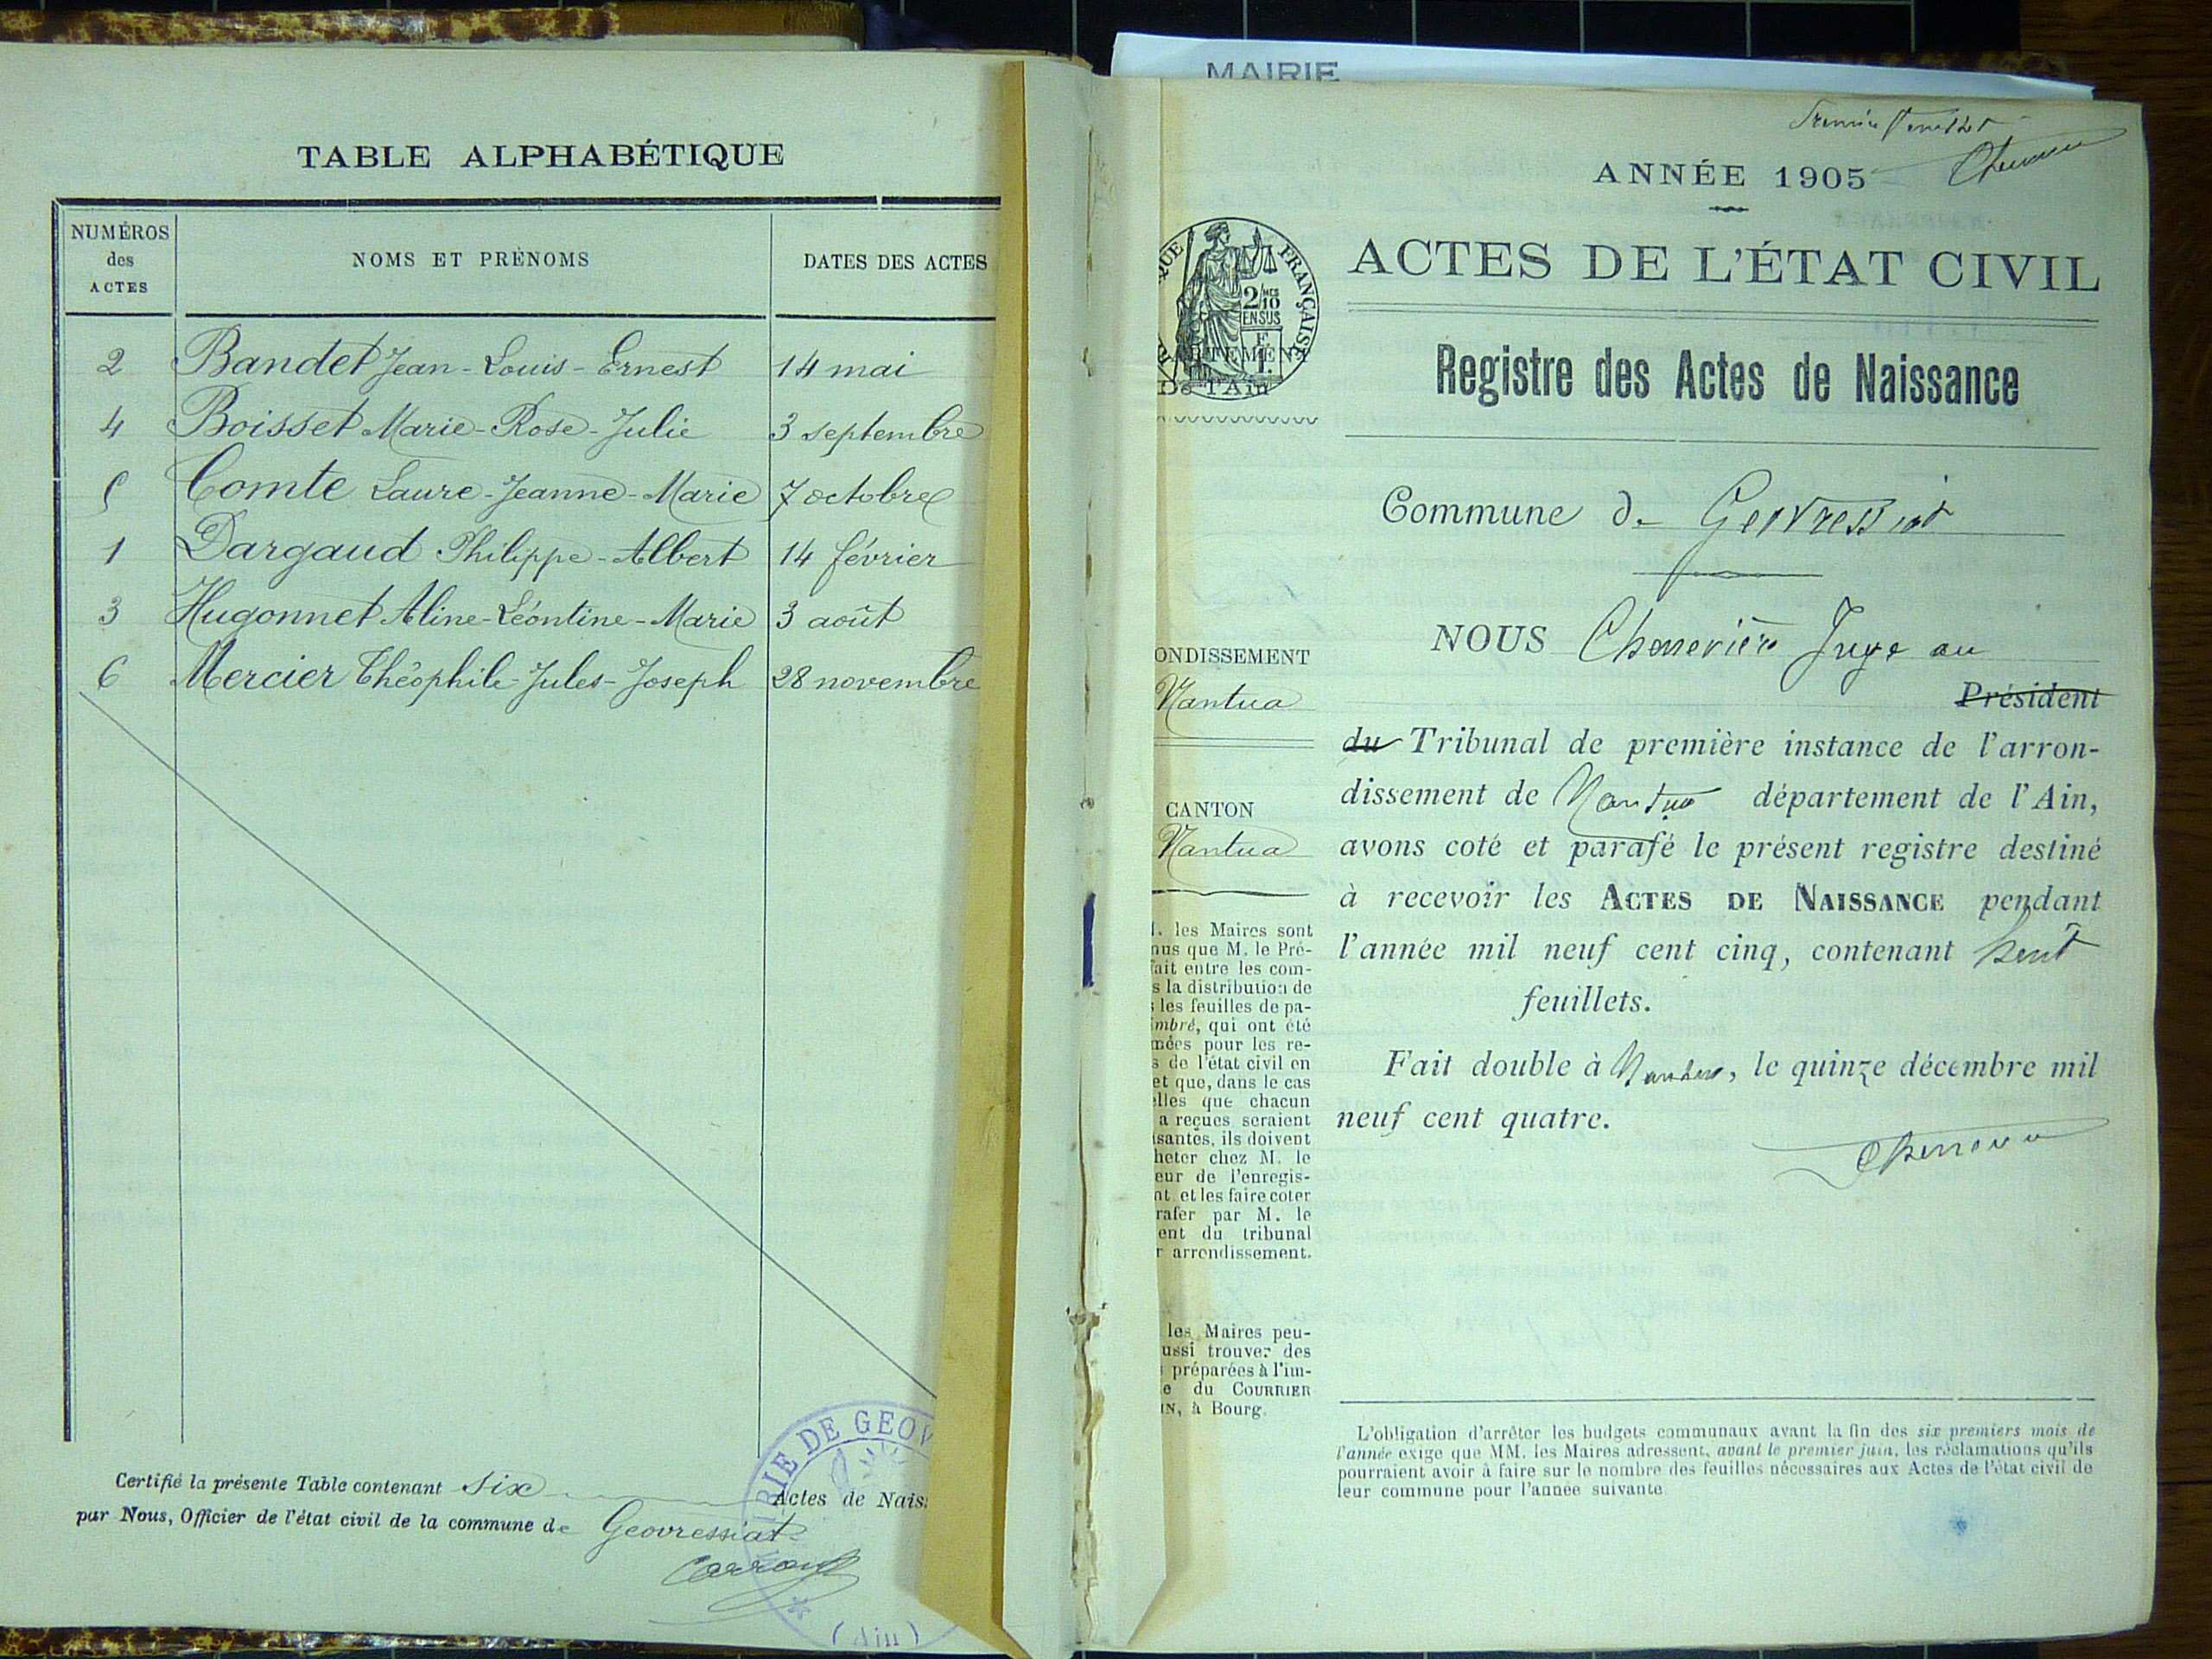 TABLE ALPHABÉTIQUE
NUMÉROS des ACTES
NOMS ET PRÉNOMS
DATES DES ACTES
2 Bandet Jean-Louis-Ernest 14 mai
4 Boisset Marie-Rose-Julie 3 septembre
5 Comte Laure-Jeanne-Marie 7 octobre
1 Dargaud Philippe-Albert 14 février
3 Hugonnet Aline-Léontine-Marie 3 août
6 Mercier Théophile-Jules-Joseph 28 novembre
Certifié la présente Table contenant six Actes de Nais
par Nous, Officier de l'état civil de la commune de Geovressiat
RIE DE GEOV
(Ain)
MAIRIE
ANNÉE 1905
ACTES DE L'ÉTAT CIVIL
QUE FRANÇAISE
2/10 EN SUS
De l'Ain
Registre des Actes de Naissance
Commune de Geovressiat
ONDISSEMENT
Nantua
CANTON
Nantua
. les Maires sont
nus que M. le Pré-
fait entre les com-
s la distribution de
s les feuilles de pa-
imbré, qui ont été
mées pour les re-
s de l'état civil en
et que, dans le cas
elles que chacun
a reçues seraient
isantes, ils doivent
heter chez M. le
eur de l'enregis-
nt et les faire coter
rafer par M. le
ent du tribunal
r arrondissement.
les Maires peu-
ussi trouver des
préparées à l'im-
e du COURRIER
IN, à Bourg.
NOUS Chenevière Juge au
Président
du Tribunal de première instance de l'arron-
dissement de Nantua département de l'Ain,
avons coté et parafé le présent registre destiné
à recevoir les ACTES DE NAISSANCE pendant
l'année mil neuf cent cinq, contenant huit
feuillets.
Fait double à Nantua, le quinze décembre mil
neuf cent quatre.
L'obligation d'arrêter les budgets communaux avant la fin des six premiers mois de
l'année exige que MM. les Maires adressent, avant le premier juin, les réclamations qu'ils
pourraient avoir à faire sur le nombre des feuilles nécessaires aux Actes de l'état civil de
leur commune pour l'année suivante